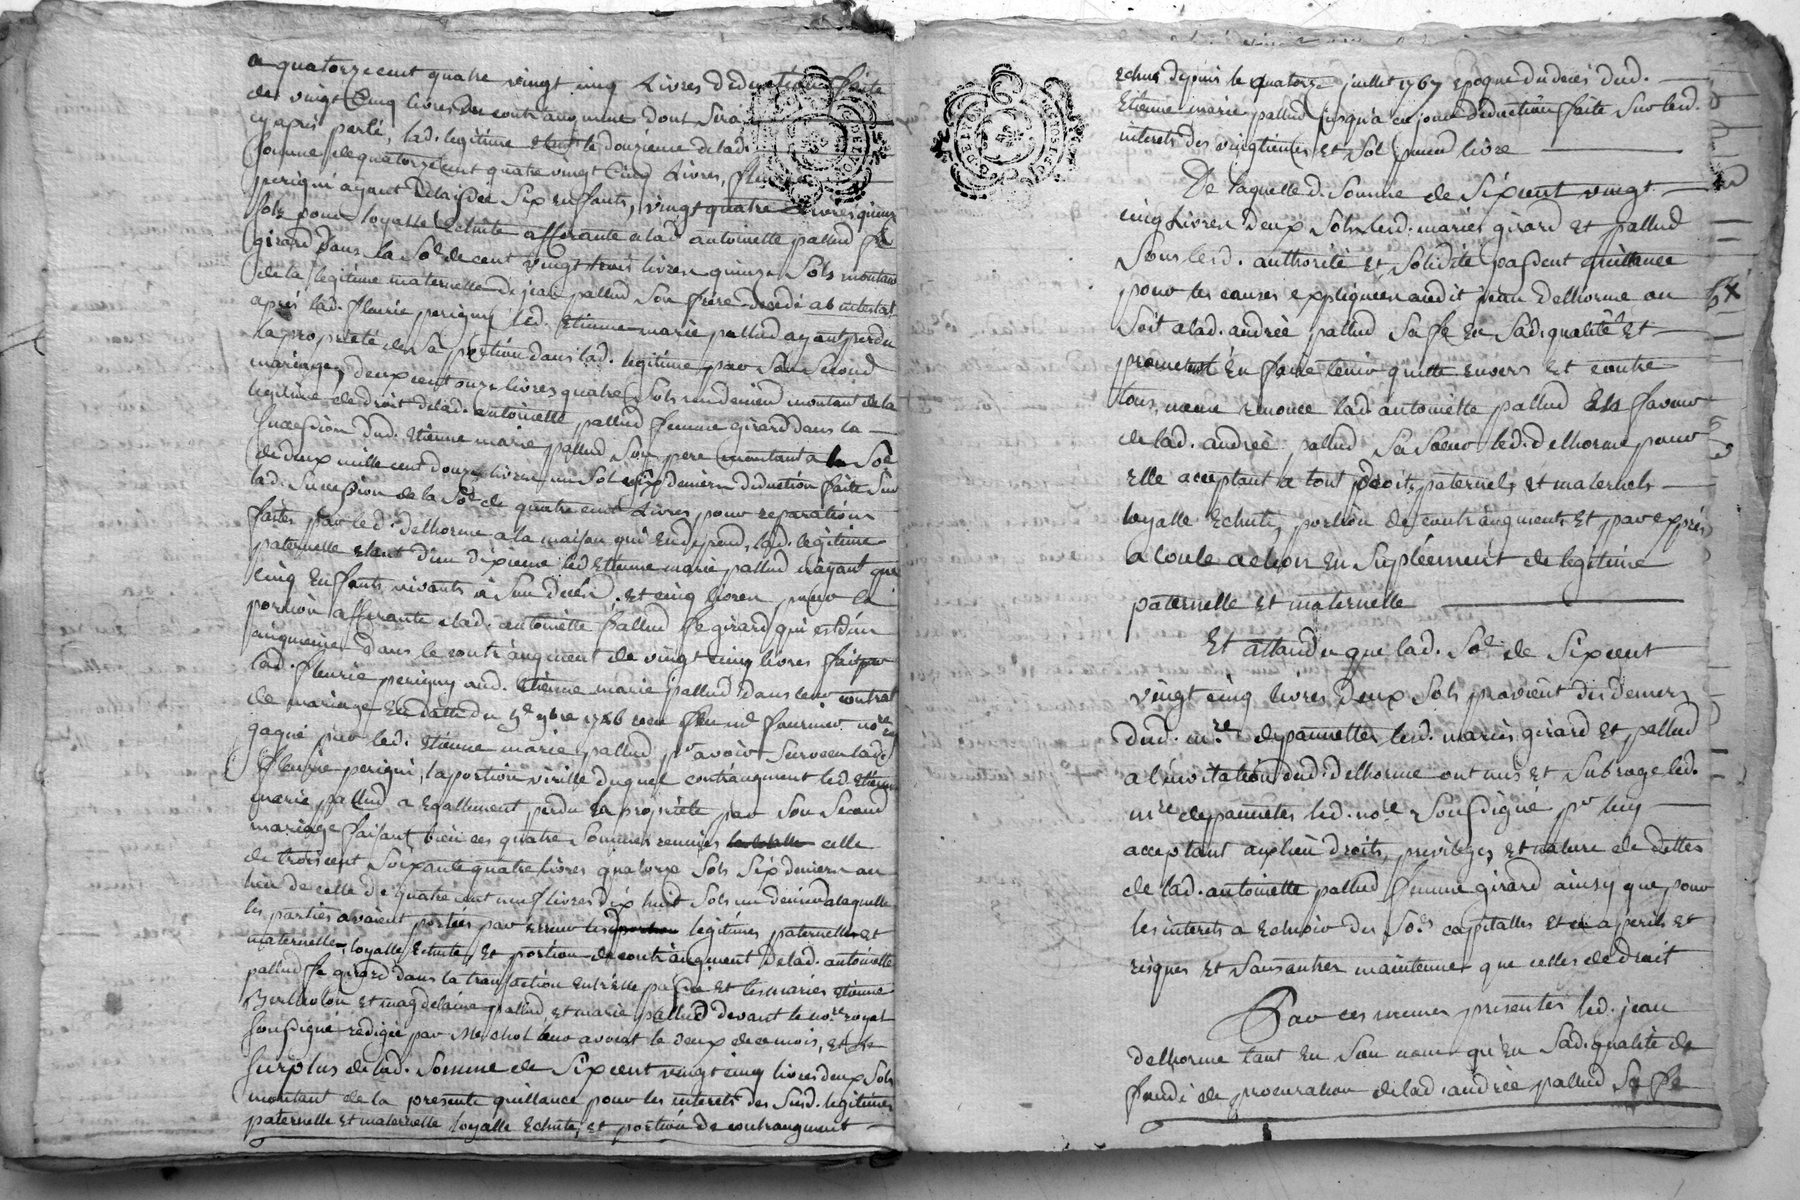 a quatorze cent quatre vingt cinq Livres deduction faite
de vingt Cinq livres de contraugment dont Sera
cy aprés parlé, lad. legitime etant le douzieme delad.
Somme de quatorze cent quatre vingt Cinq Livres, fleurie
perigni ayant delaissée Six enfants, vingt quatre Livres quinze
Sols pour loyalle Echute afferante a lad antoinette pallud fe
girard dans la So.e de cent vingt trois livres quinze Sols montant
de la legitime maternelle de jean pallud Son frere decedé ab intestat
aprés lad. fleurie perigny led. Etienne marie pallud ayant perdu
la proprieté de Sa portion dans lad. legitime par Son Second
mariage, deux cent onze livres quatre Sols un denier montant de la
legitime de droit delad. antoinette pallud femme girard dans la
Succession dud. Etienne marie pallud Son pere montant a la So.e
de deux mille cent douze livres un Sol six deniers deduction faite Sur
lad. Succession de la So.e de quatre cent Livres pour reparations
faites par led. delhorme a la maison qui En depend, lad. legitime
paternelle etant d'un dixieme led Etienne marie pallud n'ayant que
Cinq Enffants vivants a Son decés. et cinq livres pour la
portion afferante a lad. antoinette pallud fe girard qui est d'un
cinquieme dans le contraugment de vingt cinq livres fait par
lad. fleurie perigny aud. Etienne marie pallud dans leur contrat
de mariage En datte du 9bre 1746 recu feu me fournier no.re et
gagné par led. Etienne marie pallud pr avoir Survecu lad.
fleurie perigni, la portion virille duquel contraugment led Etienne
marie pallud a Egallement perdu En proprieté par Son Second
mariage faisant bien ces quatre Sommes reunies celle
de trois cent Soixante quatre livres quatorze Sols Six deniers au
lieu de celle de quatre cent neuf livres dix huit Sols un denier a laquelle
les parties avaient portées par erreur les legitimes paternelles et
maternelle, loyalle Echute, et portion de contraugment delad. antoinette
pallud fe girard dans la transaction Entr'elle passée et les mariés Etienne
Bertholon et magdelaine pallud, et marie pallud devant le no.re royal
Soussigné redigée par Me chol leur avocat le deux de ce mois, et le
Surplus de lad. Somme de Six cent vingt cinq livres deux Sols
montant de la presente quittance pour les interets des Susd. legitimes
paternelle et maternelle loyalle Echute, et portion de contraugment
echus depuis le quatorze juillet 1767 epoque du decés dud.
Etienne marie pallud jusqu'a ce jour deduction faite Sur lesd.
interets des vingtiemes et Sol pour livre
De laquelle d. Somme de Six cent vingt
cinq Livres deux Sols lesd. mariés girard et pallud
Sous lesd. authorité et Solidité passent quittance
pour les causes expliquées audit jean Delhorme ou
Soit a lad. andrée pallud Sa fe En Sad. qualité Et
promettent En faire tenir quitte envers et contre
tous, meme renonce lad. antoinette pallud En faveur
de lad. andrée pallud Sa Soeur led. delhorme pour
elle acceptant a tout droits paternels et maternels
loyalle Echute, portion de contraugment Et par exprés
a toute action En Supléement de legitime
paternelle et maternelle
Et attandu que lad. So.e de Six cent
vingt cinq livres deux Sols provient des deniers
dud. m.re depannettes lesd. mariés girard et pallud
a l'invitation dud. delhorme ont mis et Subrogé led.
m.re depannetes led. no.re Soussigné pr luy
acceptant aux lieu droits, privileges et nature de dettes
de lad. antoinette pallud femme girard ainsy que pour
les interets a Echeoir des So.es capitalles et ce a perils et
risques et Sans autres maintenue que celles de droit
Par ces memes presentes led. jean
delhorme tant En Son nom qu'En Sad. qualité de
fondé de procuration de lad. andrée pallud Sa fe